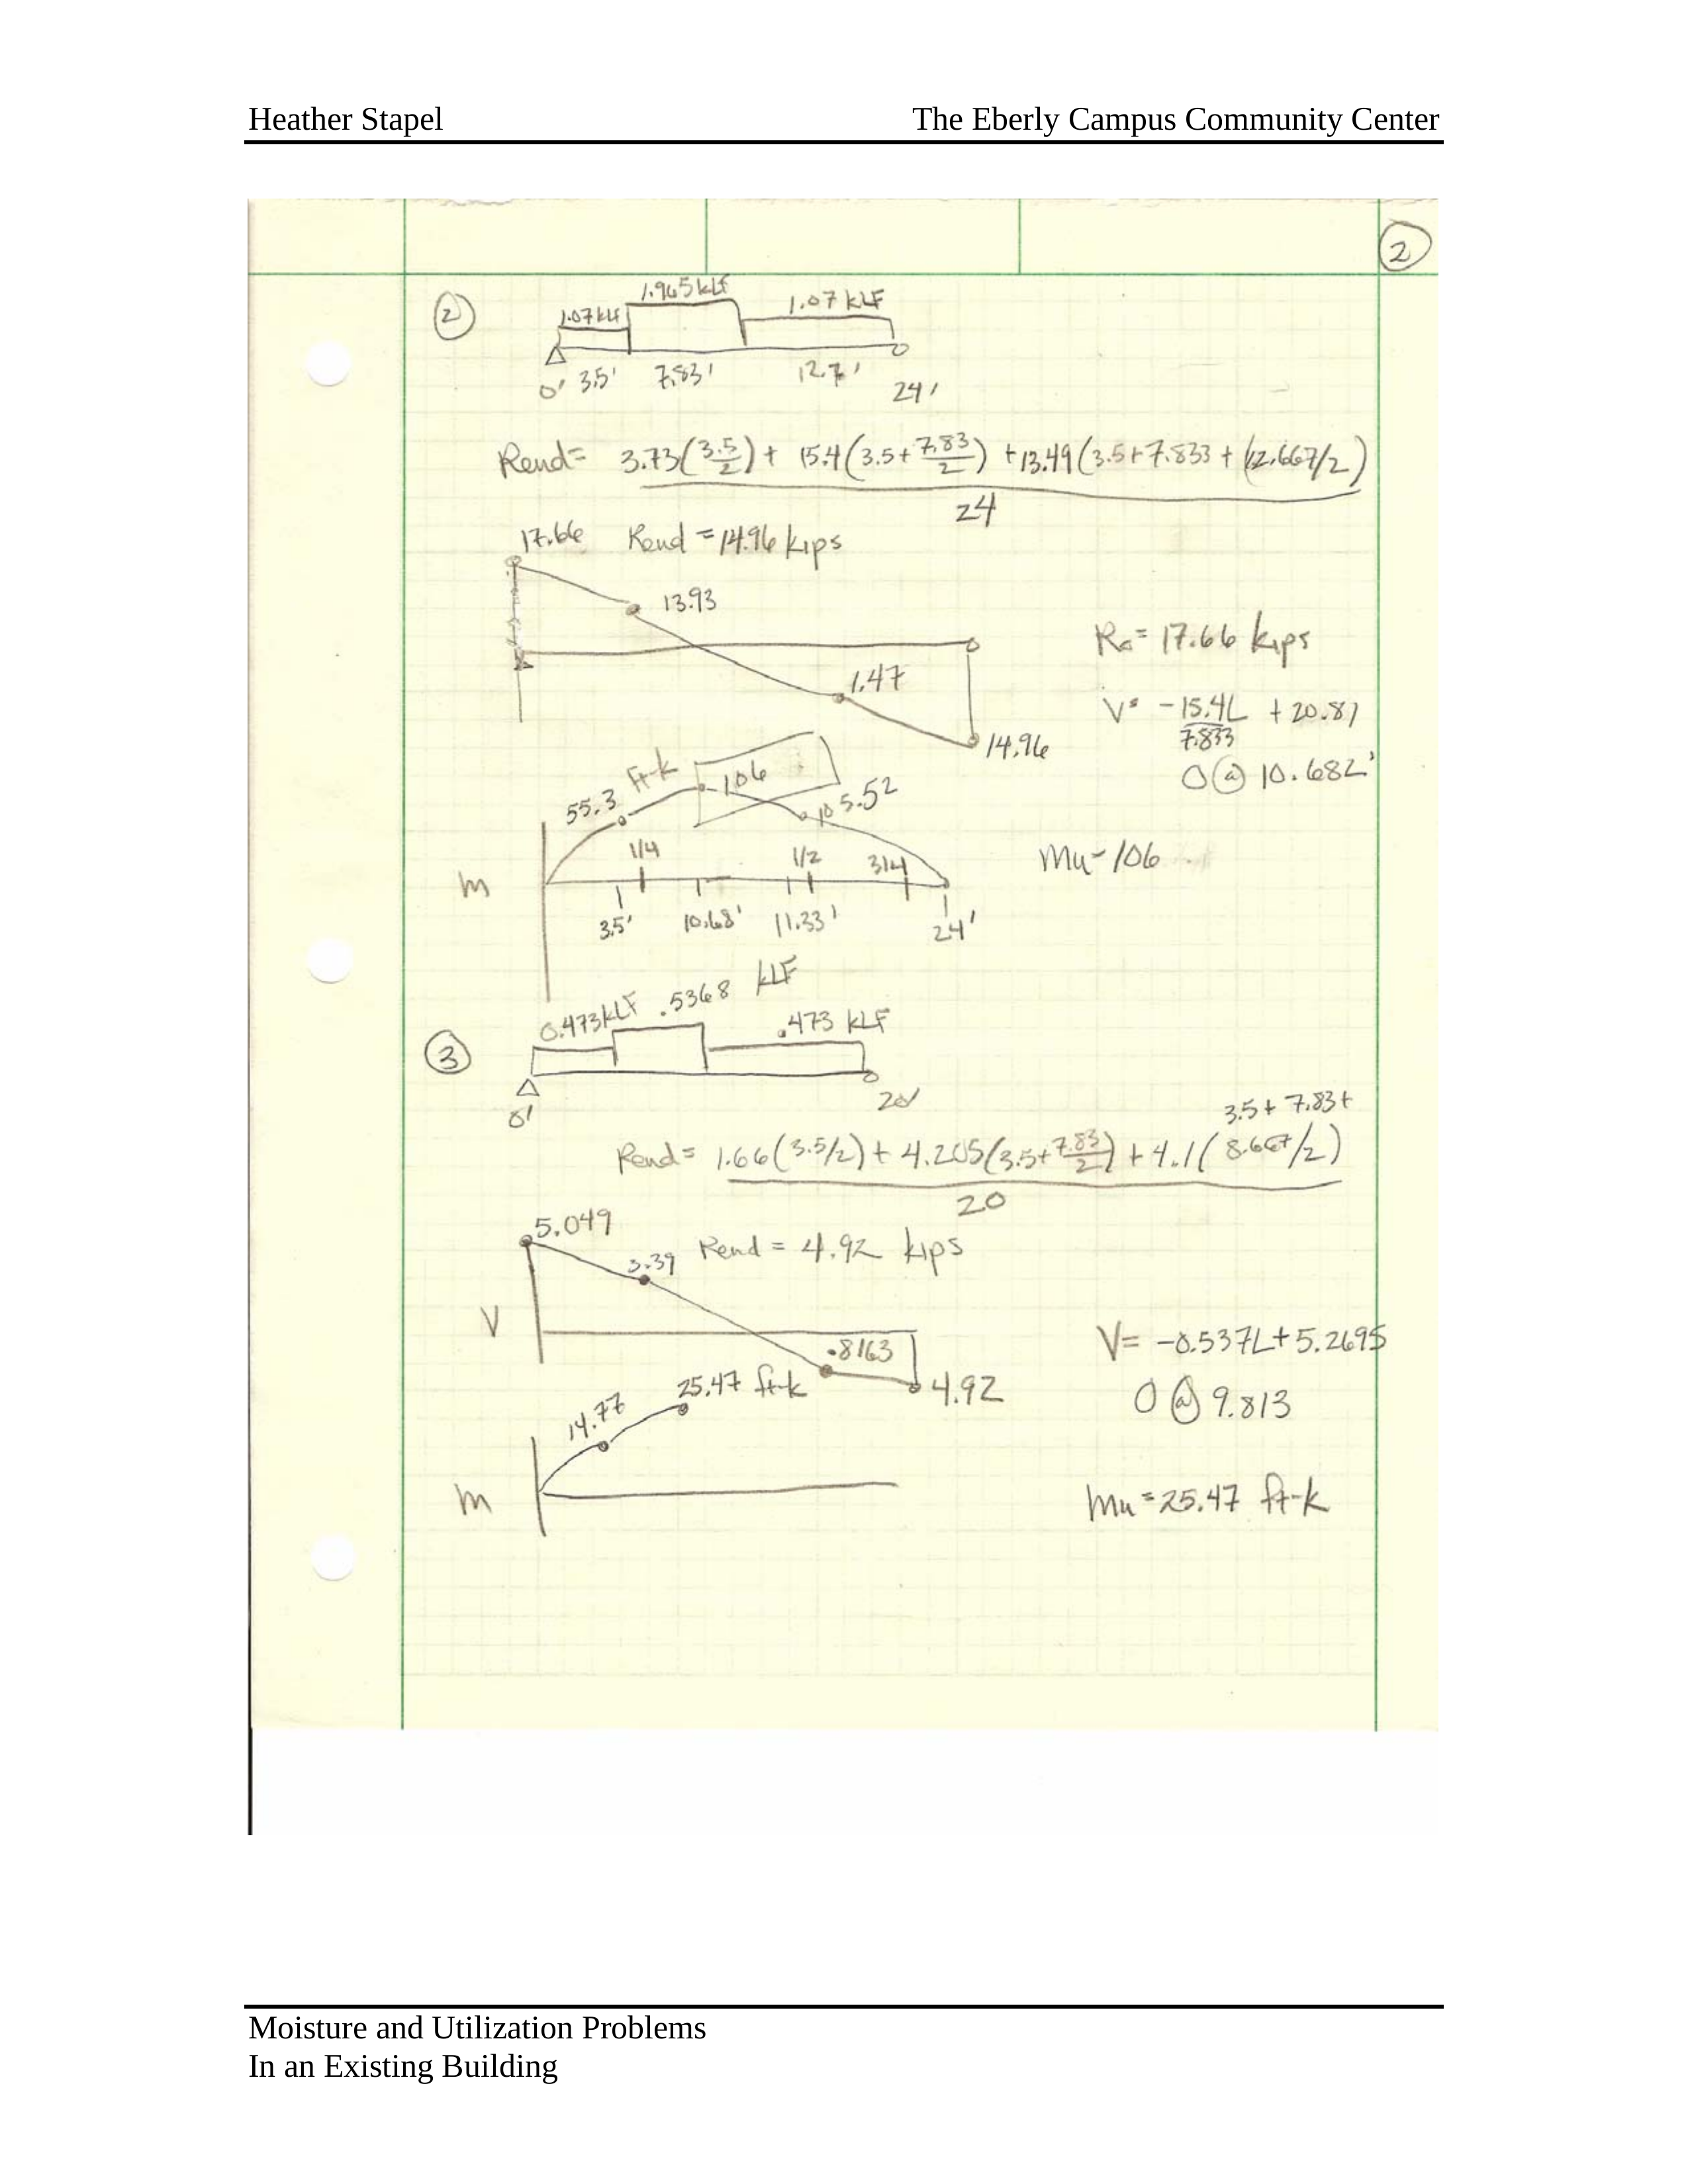 Heather Stapel The Eberly Campus Community Center
2
2 1.965 KLF
1.07 KLF 1.07 KLF
0' 3.5' 7.83' 12.7' 24'
Rend = 3.73(3.5/2) + 15.4(3.5+7.83/2) + 13.49(3.5+7.833+(12.667/2)
24
17.66 Rend = 14.96 kips
13.93
Ro = 17.66 kips
1.47
V = -15.4L/7.833 + 20.81
14.96
0 @ 10.682'
55.3 ft-k 106 105.52
Mu - 106
1/4 1/2 3/4
M
3.5' 10.68' 11.33' 24'
0.473 KLF .5368 KLF .473 KLF
3
0' 20'
3.5 + 7.83 +
Rend = 1.66(3.5/2) + 4.205(3.5+7.83/2) + 4.1(8.667/2)
20
5.049
3.39 Rend = 4.92 kips
V
.8163
V = -0.537L + 5.2695
4.92
0 @ 9.813
14.77 25.47 ft-k
M
Mu = 25.47 ft-k
Moisture and Utilization Problems
In an Existing Building